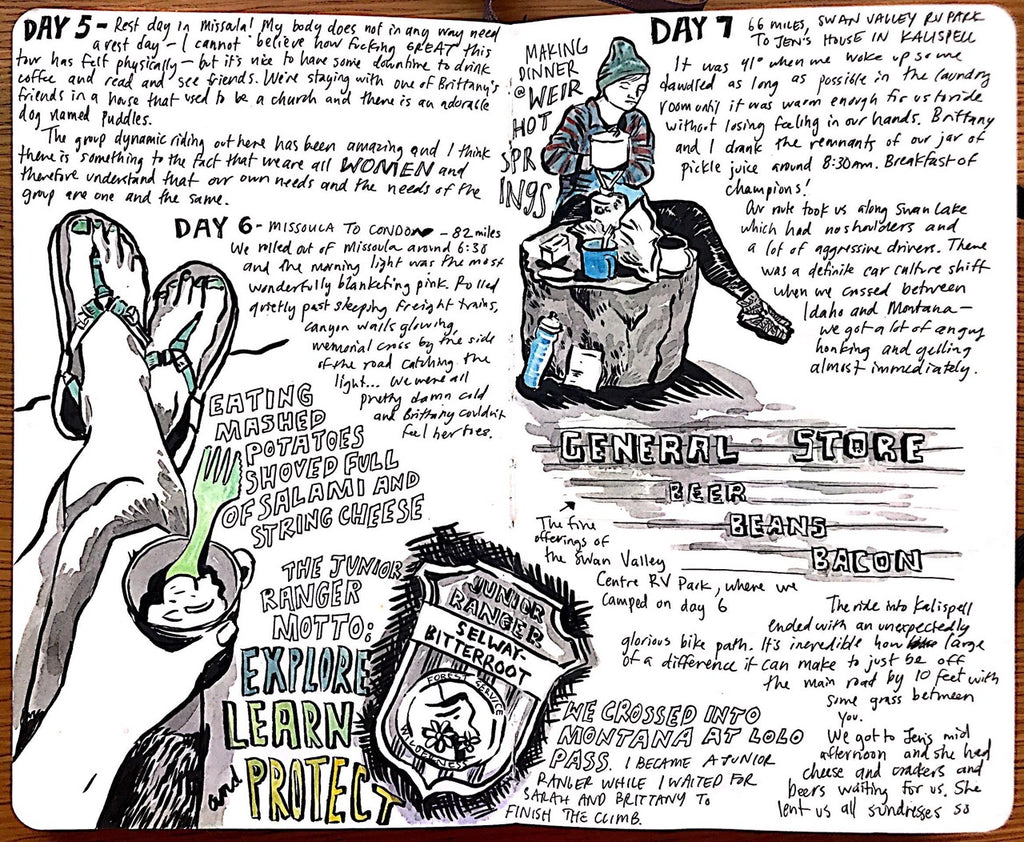 DAY 5 - Rest day in Missoula! My body does not in any way need
a rest day - I cannot believe how fucking GREAT this
tour has felt physically - but it's nice to have some downtime to drink
coffee and read and see friends. We're staying with one of Brittany's
friends in a house that used to be a church and there is an adorable
dog named Puddles.
The group dynamic riding out here has been amazing and I think
there is something to the fact that we are all WOMEN and
therefore understand that our own needs and the needs of the
group are one and the same.
DAY 6 - MISSOULA TO CONDON - 82 miles
We rolled out of Missoula around 6:30
and the morning light was the most
wonderfully blanketing pink. Rolled
quietly past sleeping freight trains,
canyon walls glowing,
memorial cross by the side
of the road catching the
light... We were all
pretty damn cold
and Brittany couldn't
feel her toes.
EATING
MASHED
POTATOES
SHOVED FULL
OF SALAMI AND
STRING CHEESE
THE JUNIOR
RANGER
MOTTO:
EXPLORE
LEARN
and PROTECT
JUNIOR
RANGER
SELWAY-
BITTERROOT
FOREST SERVICE
WILDERNESS
WE CROSSED INTO
MONTANA AT LOLO
PASS. I BECAME A JUNIOR
RANGER WHILE I WAITED FOR
SARAH AND BRITTANY TO
FINISH THE CLIMB.
MAKING
DINNER
@ WEIR
HOT
SPR
INGS
DAY 7 66 MILES, SWAN VALLEY RV PARK
TO JEN'S HOUSE IN KALISPELL
It was 41° when we woke up so we
dawdled as long as possible in the laundry
room until it was warm enough for us to ride
without losing feeling in our hands. Brittany
and I drank the remnants of our jar of
pickle juice around 8:30am. Breakfast of
champions!
Our route took us along Swan Lake
which had no shoulders and
a lot of aggressive drivers. There
was a definite car culture shift
when we crossed between
Idaho and Montana -
we got a lot of angry
honking and yelling
almost immediately.
GENERAL STORE
BEER
BEANS
BACON
The fine
offerings of
the Swan Valley
Centre RV Park, where we
camped on day 6
The ride into Kalispell
ended with an unexpectedly
glorious bike path. It's incredible how large
of a difference it can make to just be off
the main road by 10 feet with
some grass between
you.
We got to Jen's mid
afternoon and she had
cheese and crackers and
beers waiting for us. She
lent us all sundresses so